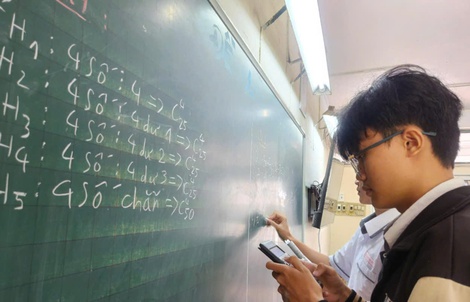 H₁ : 4 số : 4 => C⁴₂₅
H₂ : 4 số : 4 dư 1 => C⁴₂₅
H₃ : 4 số : 4 dư 2 => C⁴₂₅
H₄ : 4 số : 4 dư 3 => C⁴₂₅
H₅ : 4 số chẵn => C⁴₅₀